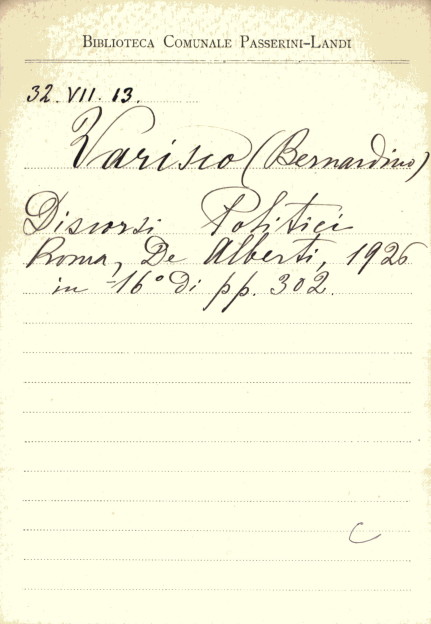 BIBLIOTECA COMUNALE PASSERINI-LANDI
32. VII. 13.
Varisco (Bernardino)
Discorsi Politici
Roma, De Alberti, 1926
in -16° di pp. 302.
C